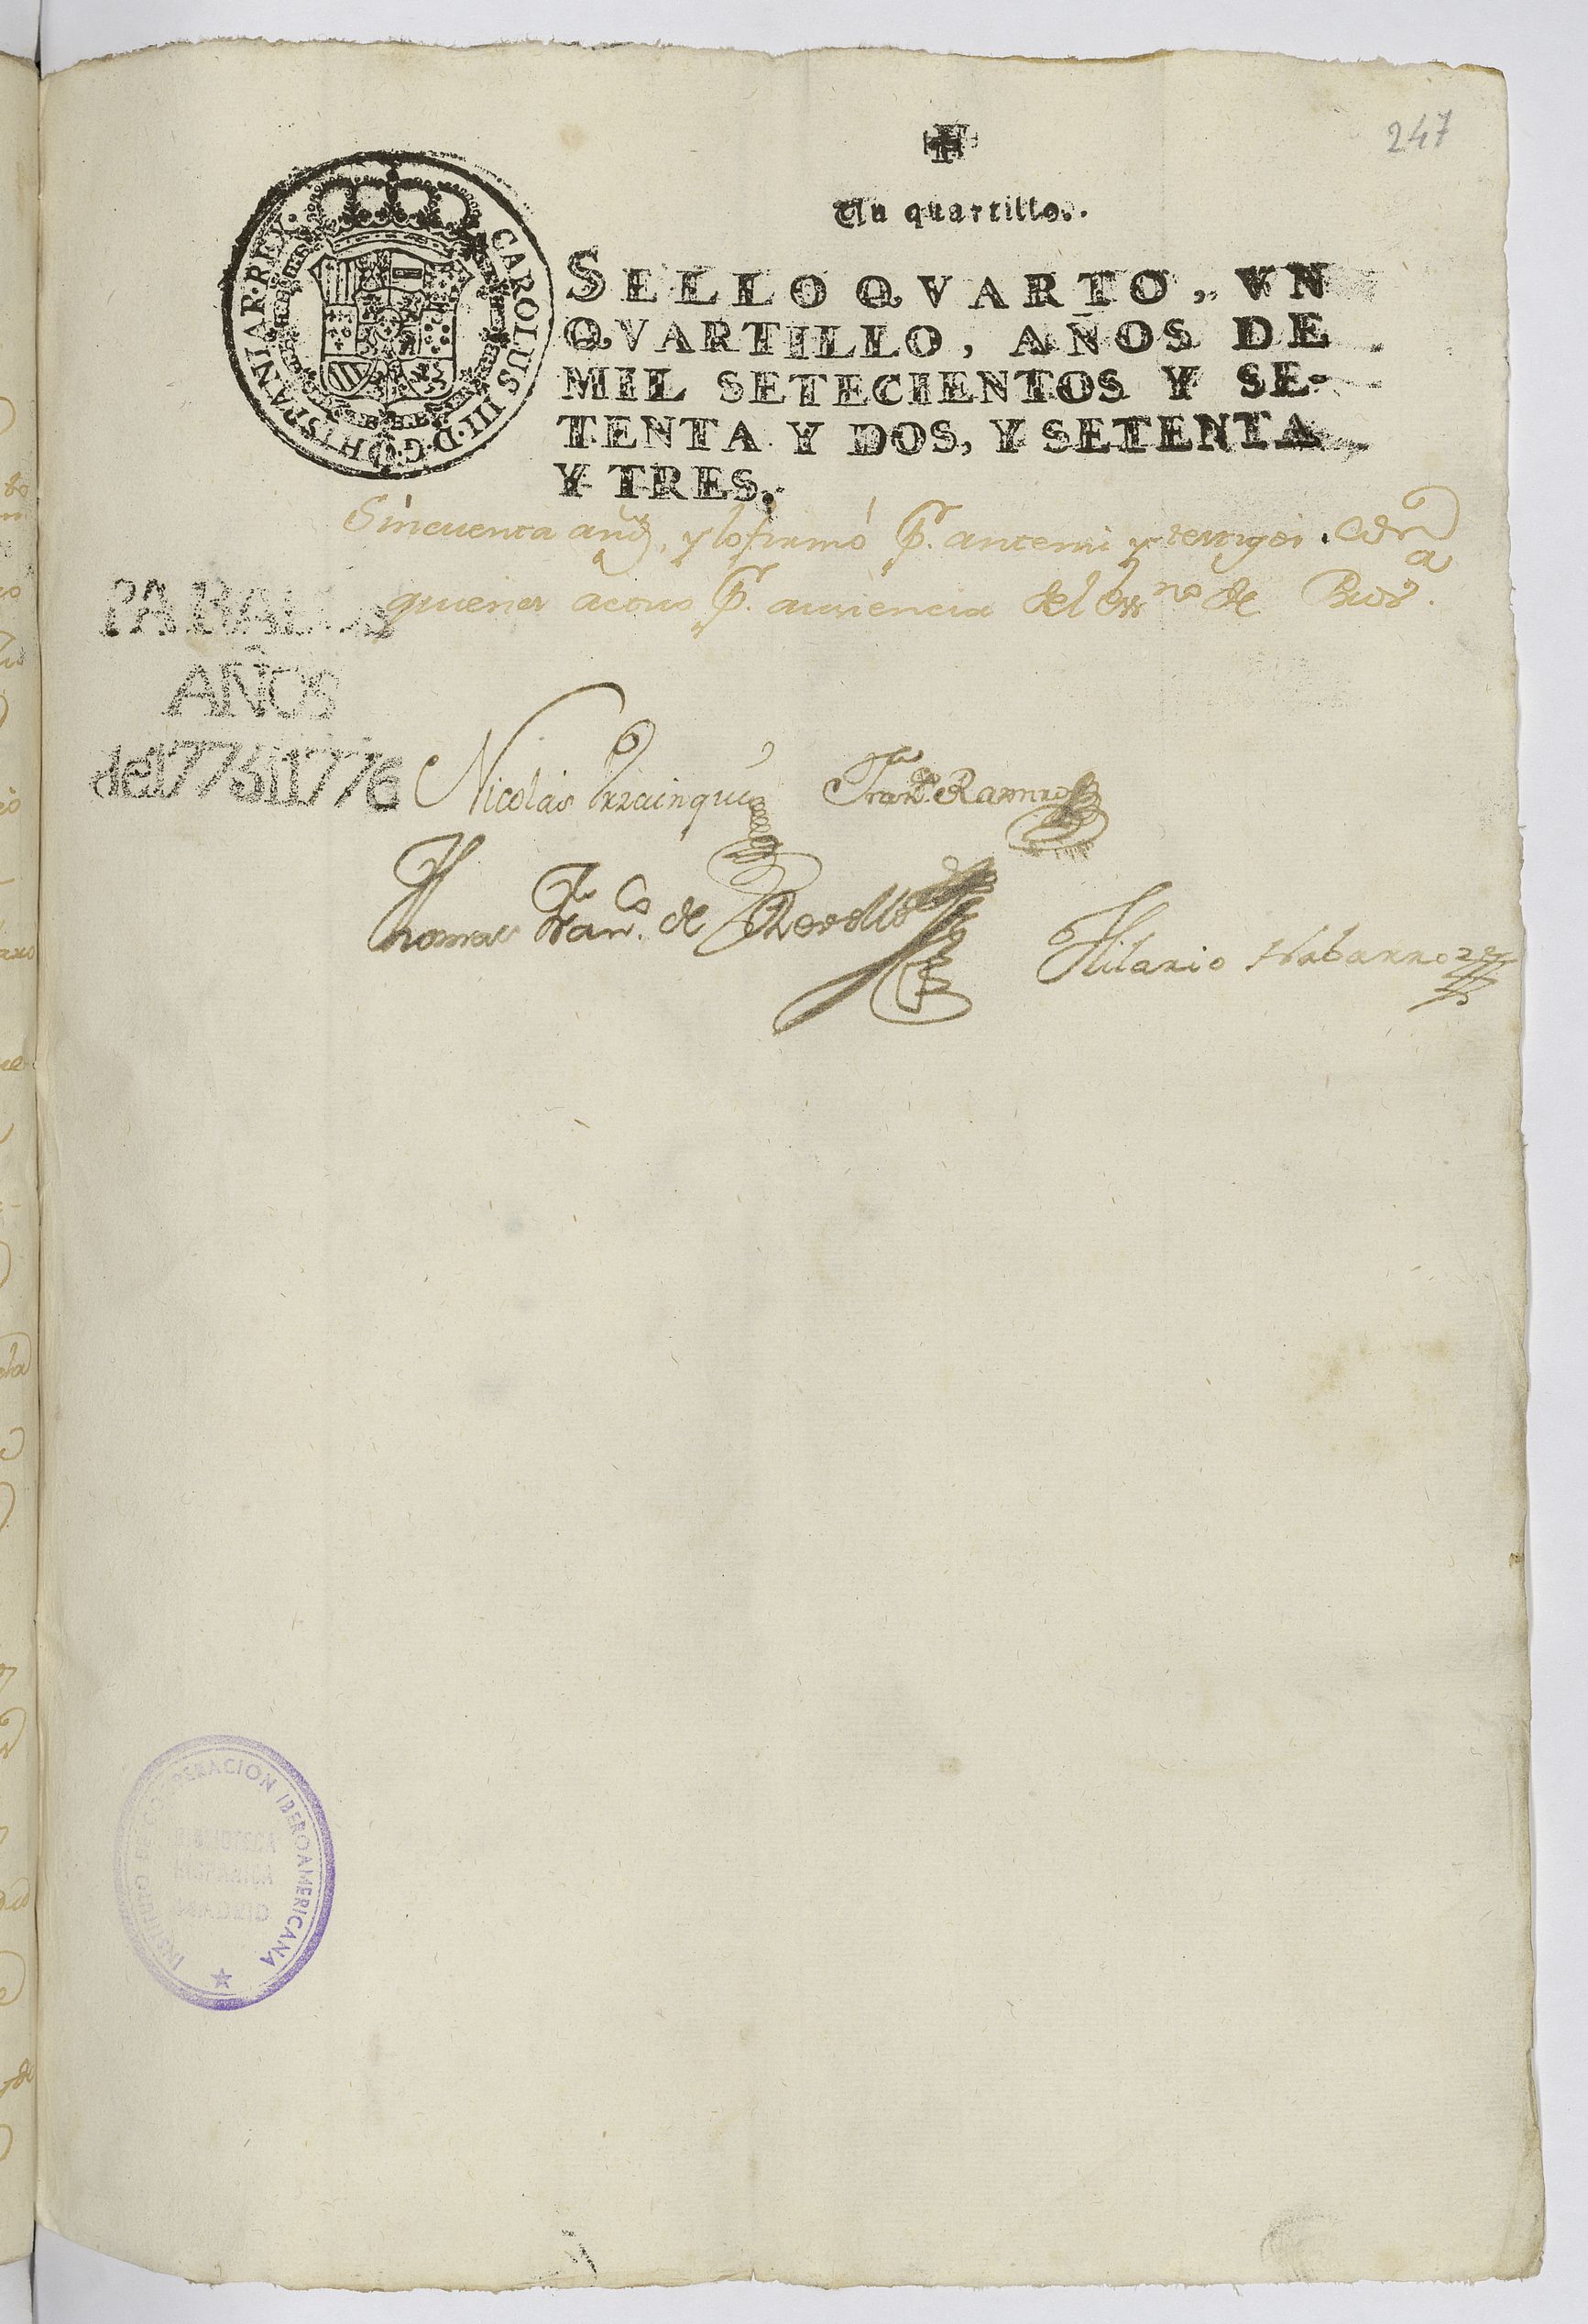 247
Un quartillo.
CAROLUS III·D·G·HISPANIAR·REX·
SELLO QVARTO, VN
QVARTILLO, AÑOS DE
MIL SETECIENTOS Y SE-
TENTA Y DOS, Y SETENTA
Y TRES.
Sincuenta añs, y lo firmó p.r ante mi y testigos. Con
quienes actuo p.r auciencia del Ess.no de
PA BALGA
AÑOS
de 1775 i 1776
Nicolas Yrrainqui Fran.co Ramiro
Thomas Fran.co de Hilario Nabarro
INSTITUTO DE COOPERACION IBEROAMERICANA
BIBLIOTECA
HISPANICA
MADRID